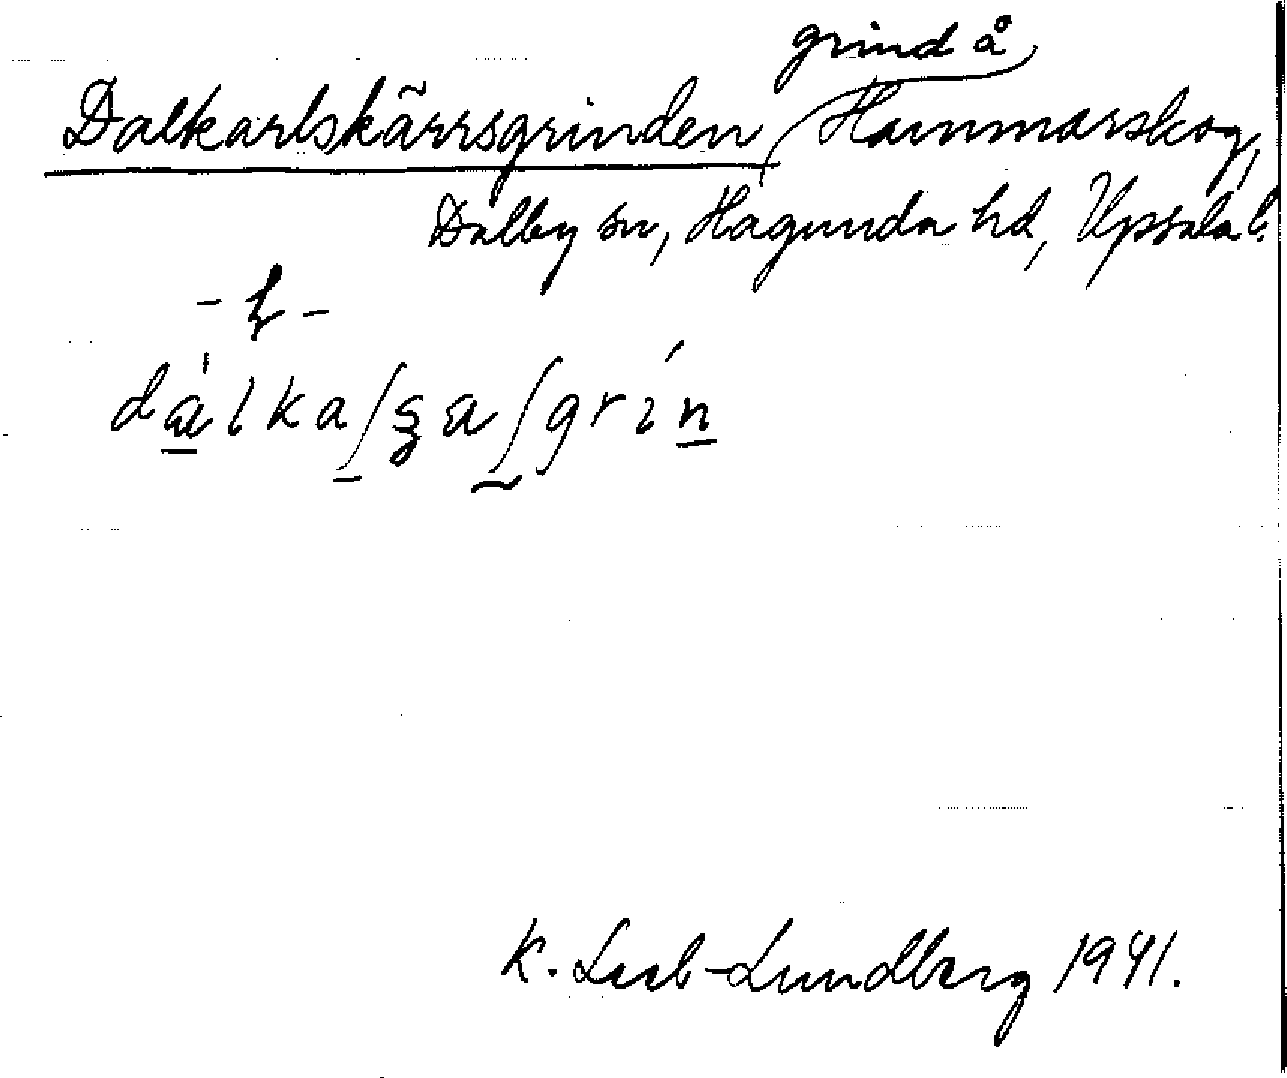 grind å
Dalkarlskärrsgrinden, Hammarskog,
Dalby sn, Hagunda hd, Upsala l.
K. Leeb-Lundberg 1941.